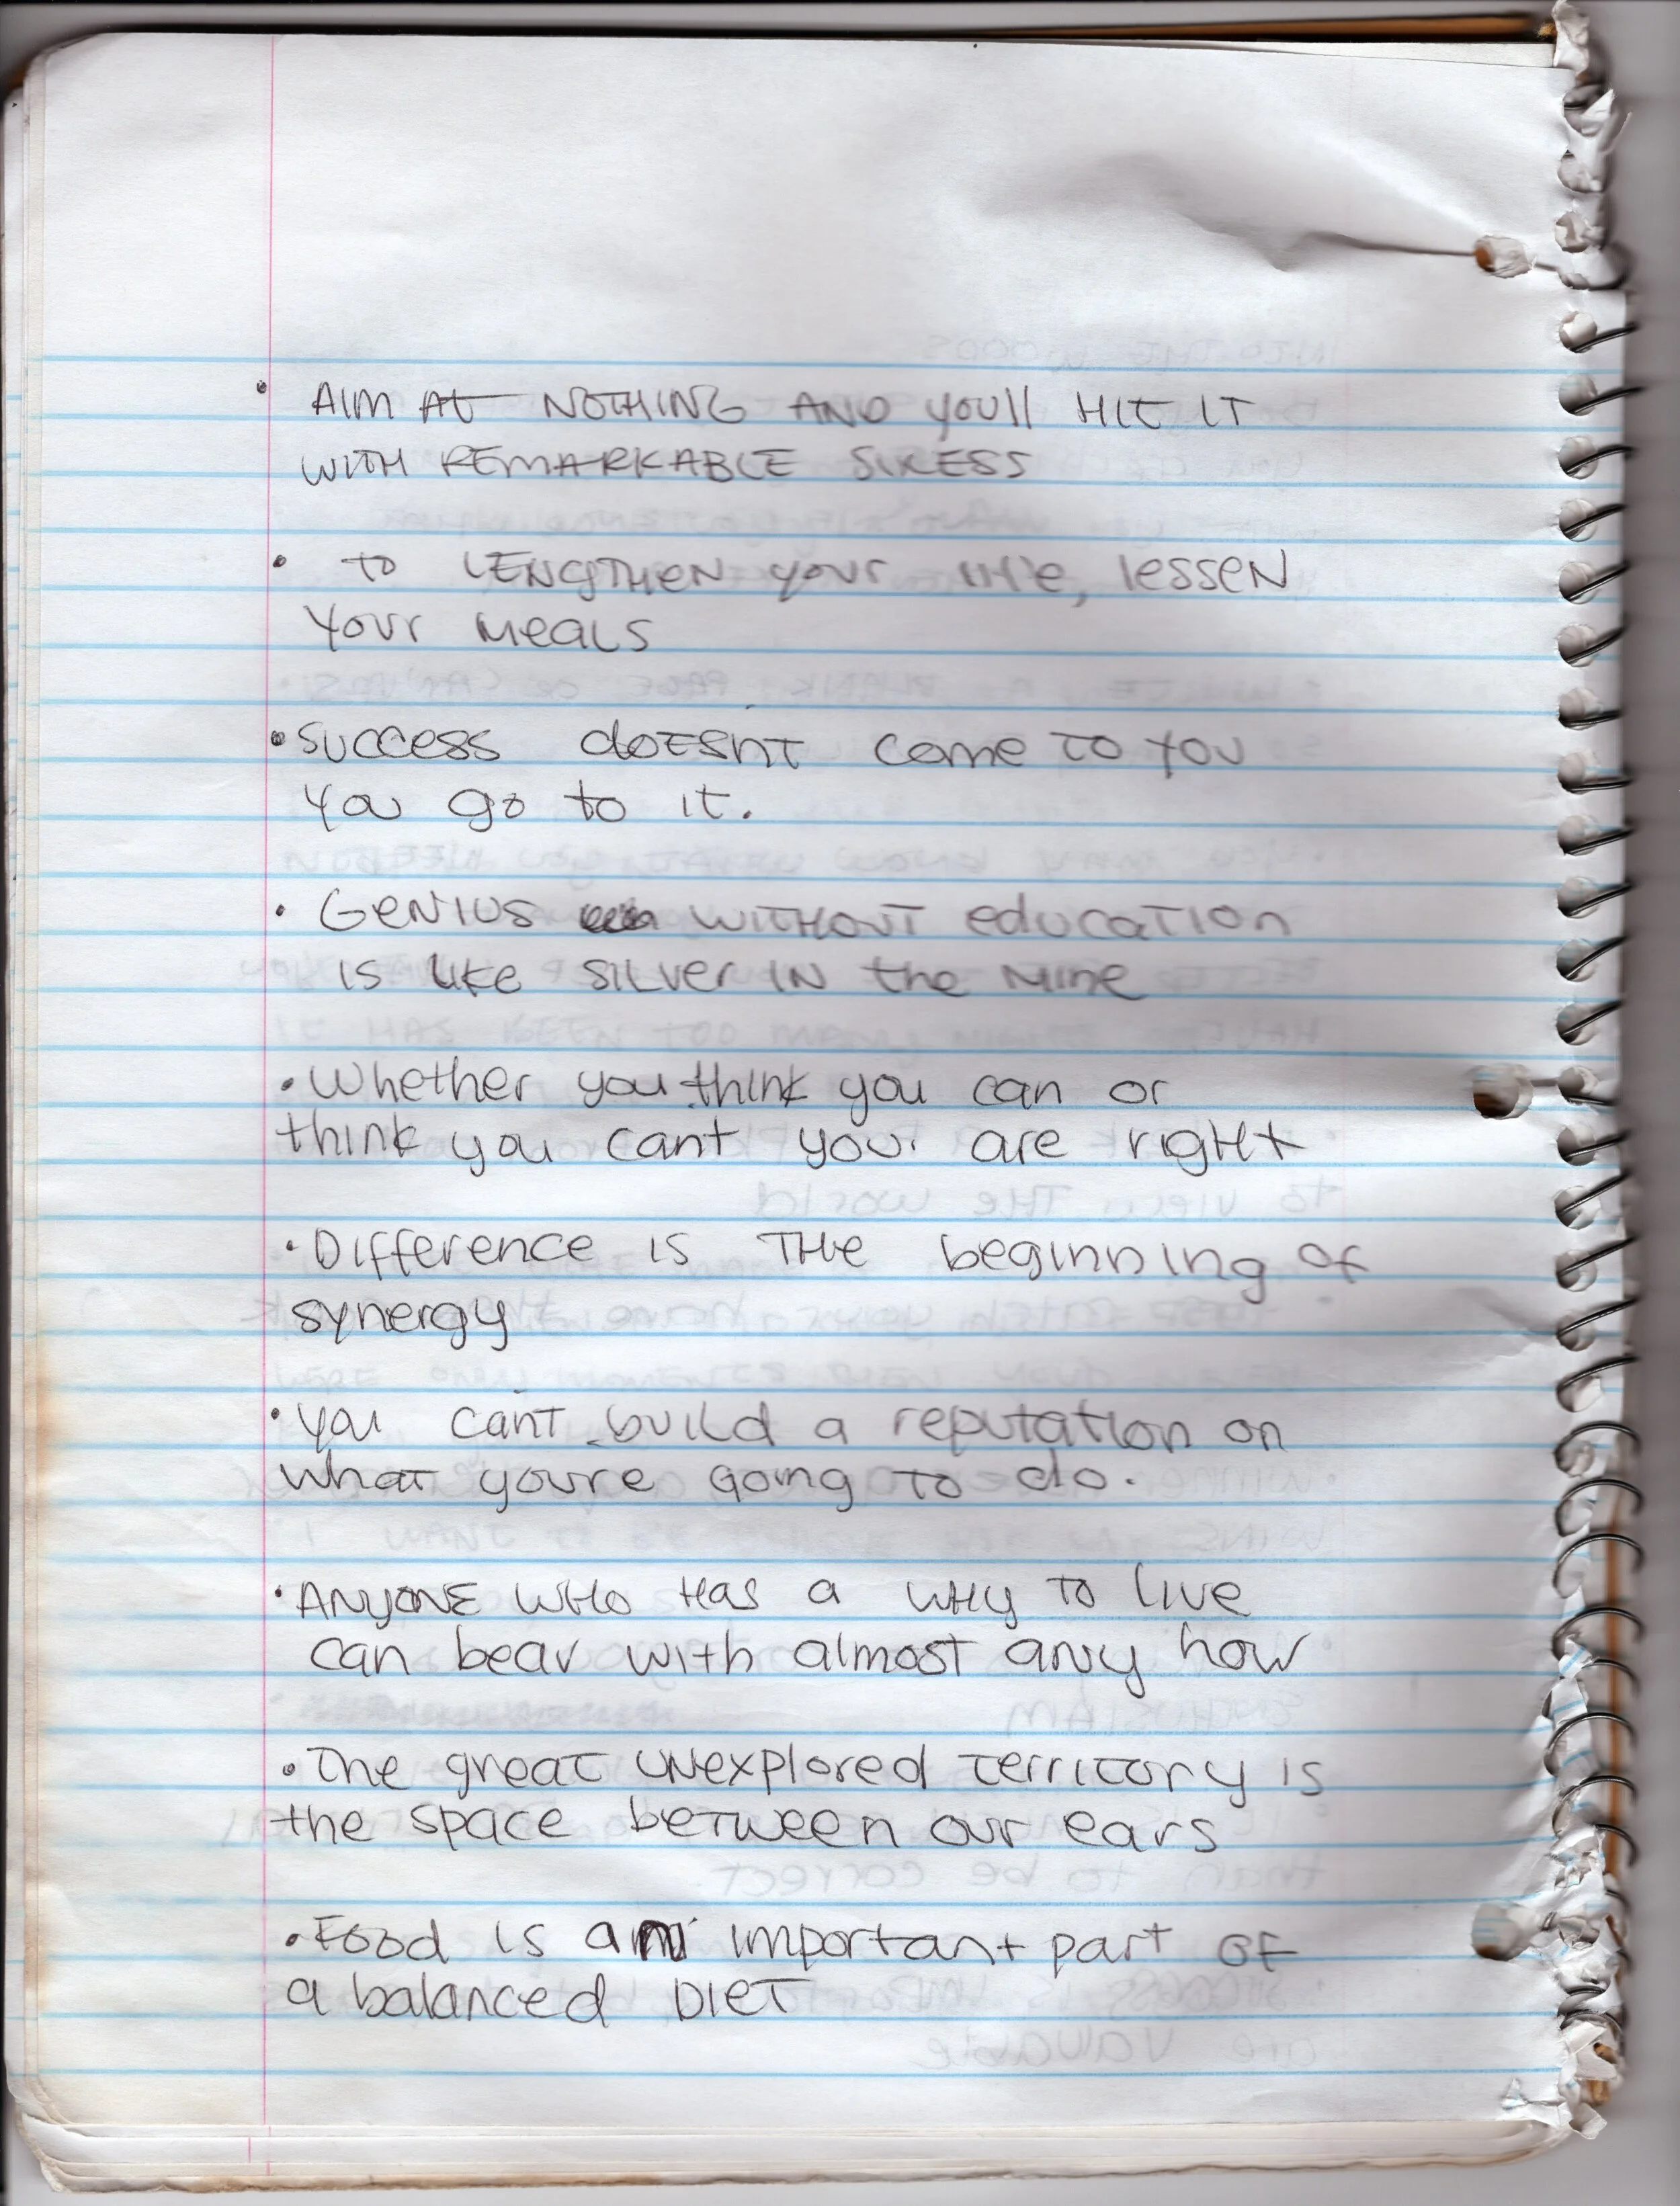 • AIM At NOTHING AND YOU'll HIt IT
WITH REMARKABLE SUCESS
• to LENGTHEN your life, lessen
Your meals
• SUCCESS doESnT come TO YOU
You go to it.
• GENIUS WITHOUT educaTion
is like SILver IN the Mine
• Whether you think you can or
think you cant you are rigHt
• Difference is THe beginning of
synergy
• You canT build a reputation on
whaT youre Going To do.
• ANYONE WHo Has a WHy To live
can bear with almost any how
• The greaT UNexplored Territory is
the space beTween our ears
• Food is an important part OF
a balanced DIeT